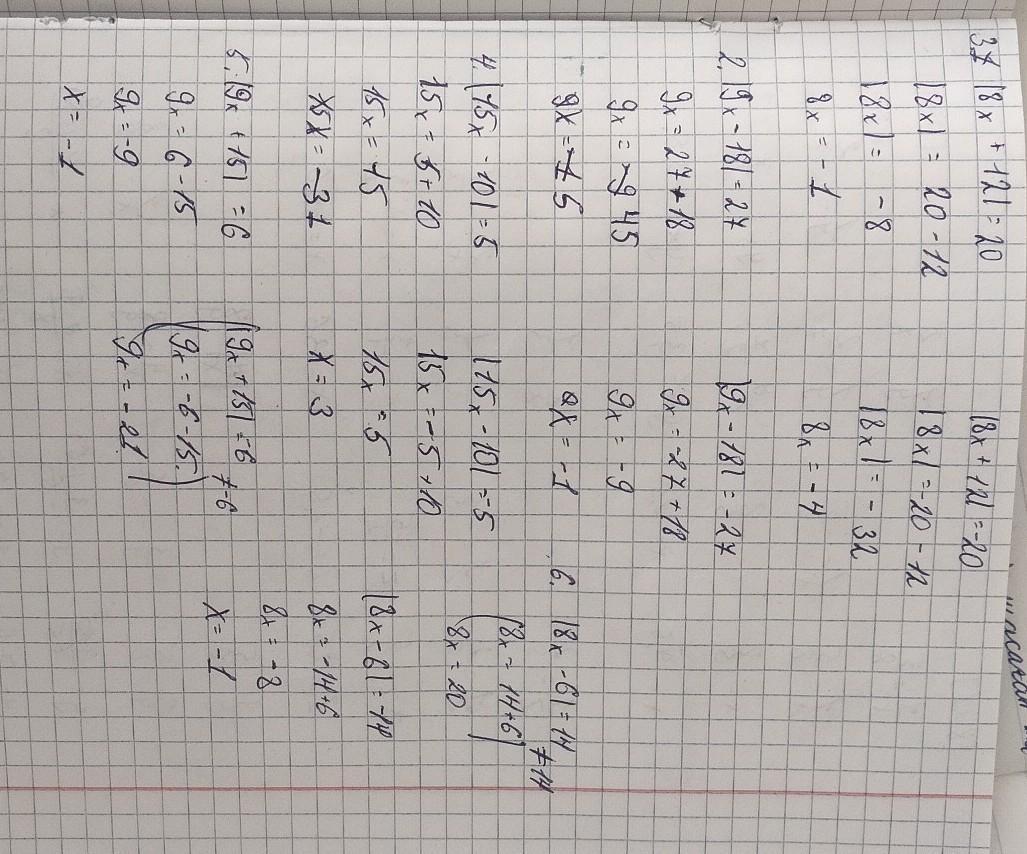 3. |8x + 12| = 20
|8x| = 20 - 12
|8x| = -8
8x = -1
|8x + 12| = -20
|8x| = -20 - 12
|8x| = -32
8x = -4
2. |9x - 18| = 27
9x = 27 + 18
9x = 45
9x = 5
|9x - 18| = -27
9x = -27 + 18
9x = -9
x = -1
4. |15x - 10| = 5
15x = 5 + 10
15x = 15
x = 1
|15x - 10| = -5
15x = -5 + 10
15x = 5
x = 3
5. |9x + 15| = 6
9x = 6 - 15
9x = -9
x = -1
|9x + 15| = -6
≠ -6
9x = -6 - 15
9x = -21
6. |8x - 6| = 14
≠ 14
8x = 14 + 6
8x = 20
|8x - 6| = -14
8x = -14 + 6
8x = -8
x = -1